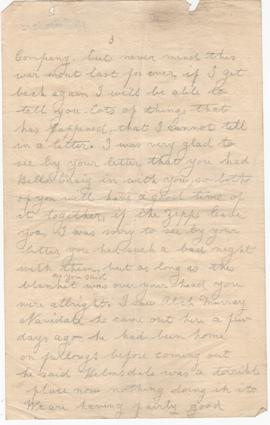 3
Company. but never mind this
war wont last for ever, if I get
back again I will be able to
tell you lots of things that
has happened, that I cannot tell
in a letter. I was very glad to
see by your letter that you had
in with you so both
of you will have a good time of
it together, if the Zepps leave
you, I was sorry to see by your
letter you had such a bad night
with them, but as long as the
as you said
blanket was over your head you
were allright. I saw Murray
Navidale he came out here a few
days ago he had been home
on before coming out
he said Helmsdale was a terrible
place now nothing doing in it.
We are having fairly good